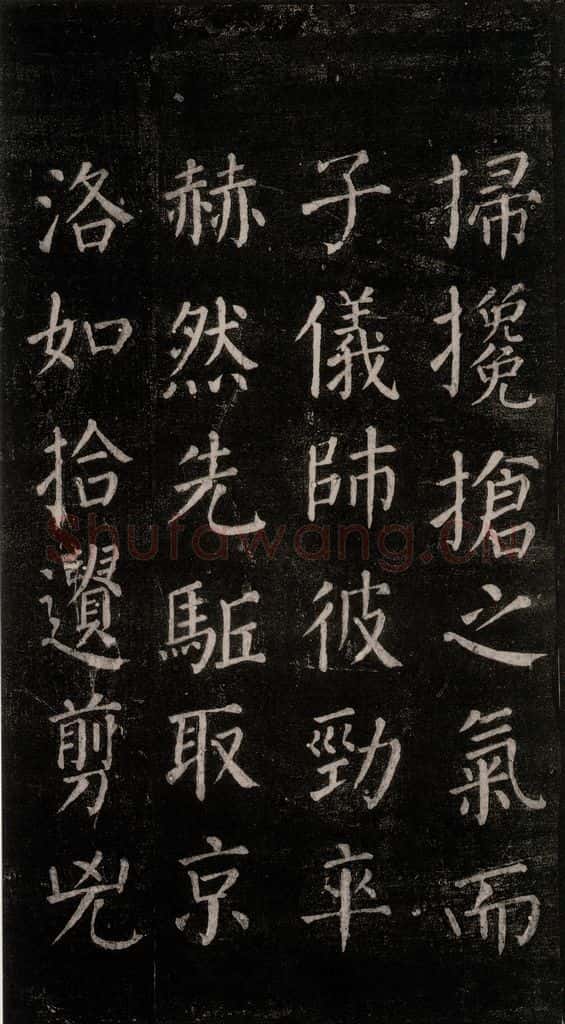 掃攙搶之氣而
子儀師彼勁卒
赫然先駈取京
洛如拾遺剪兇
Shufawang.cn